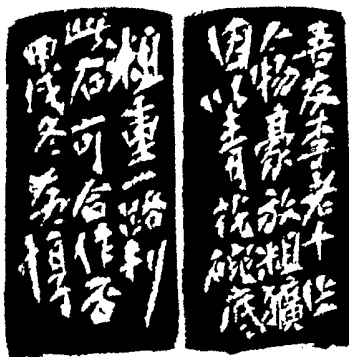 吾友李老十作
人物豪放粗犷
因以青花碗底
粗重一路刻
此石可合作否
甲戌冬